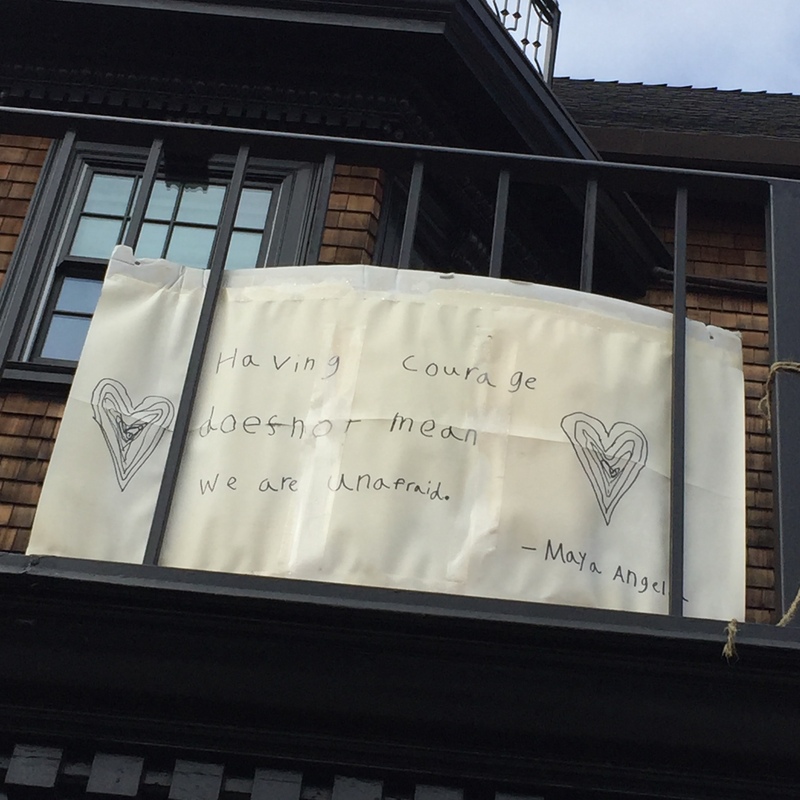 Having courage
does not mean
we are unafraid.
- Maya